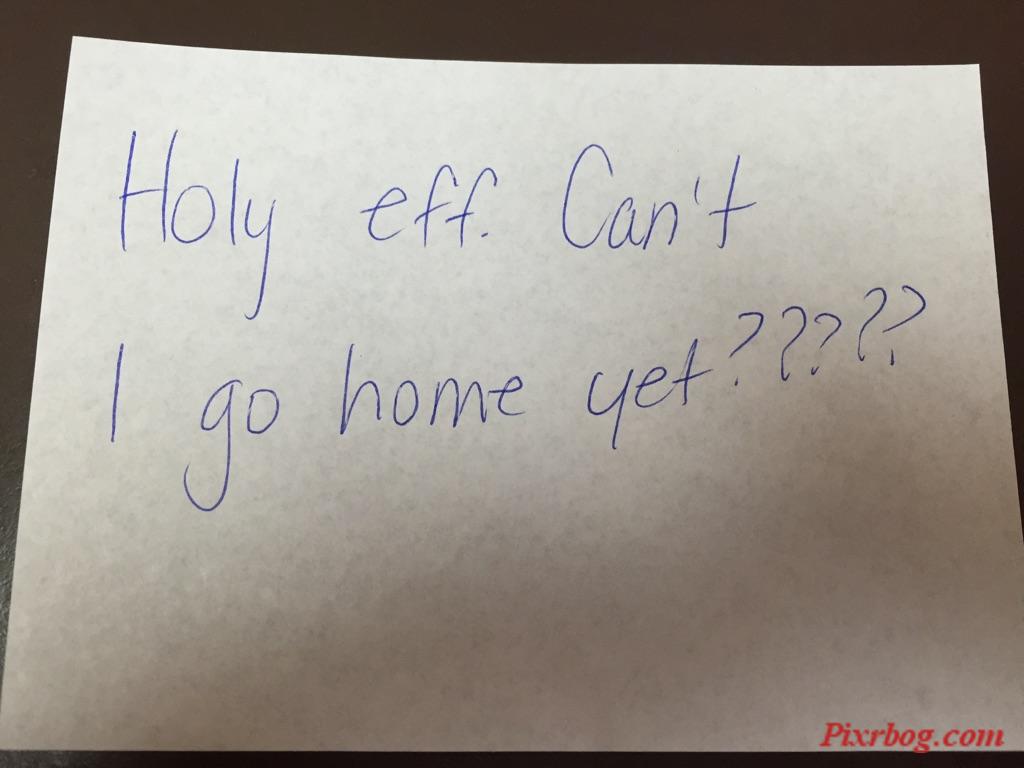 Holy eff. Can't
I go home yet?????
Pixrbog.com